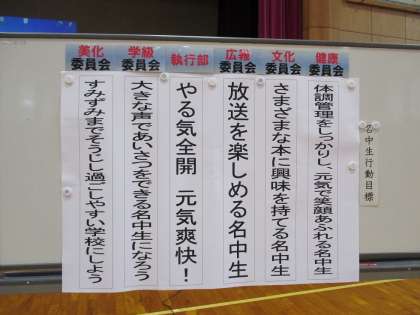 名中生行動目標
健康委員会
体調管理をしっかりし、元気で笑顔あふれる名中生
文化委員会
さまざまな本に興味を持てる名中生
広報委員会
放送を楽しめる名中生
執行部
やる気全開 元気爽快!
学級委員会
大きな声であいさつをできる名中生になろう
美化委員会
すみずみまでそうじし過ごしやすい学校にしよう